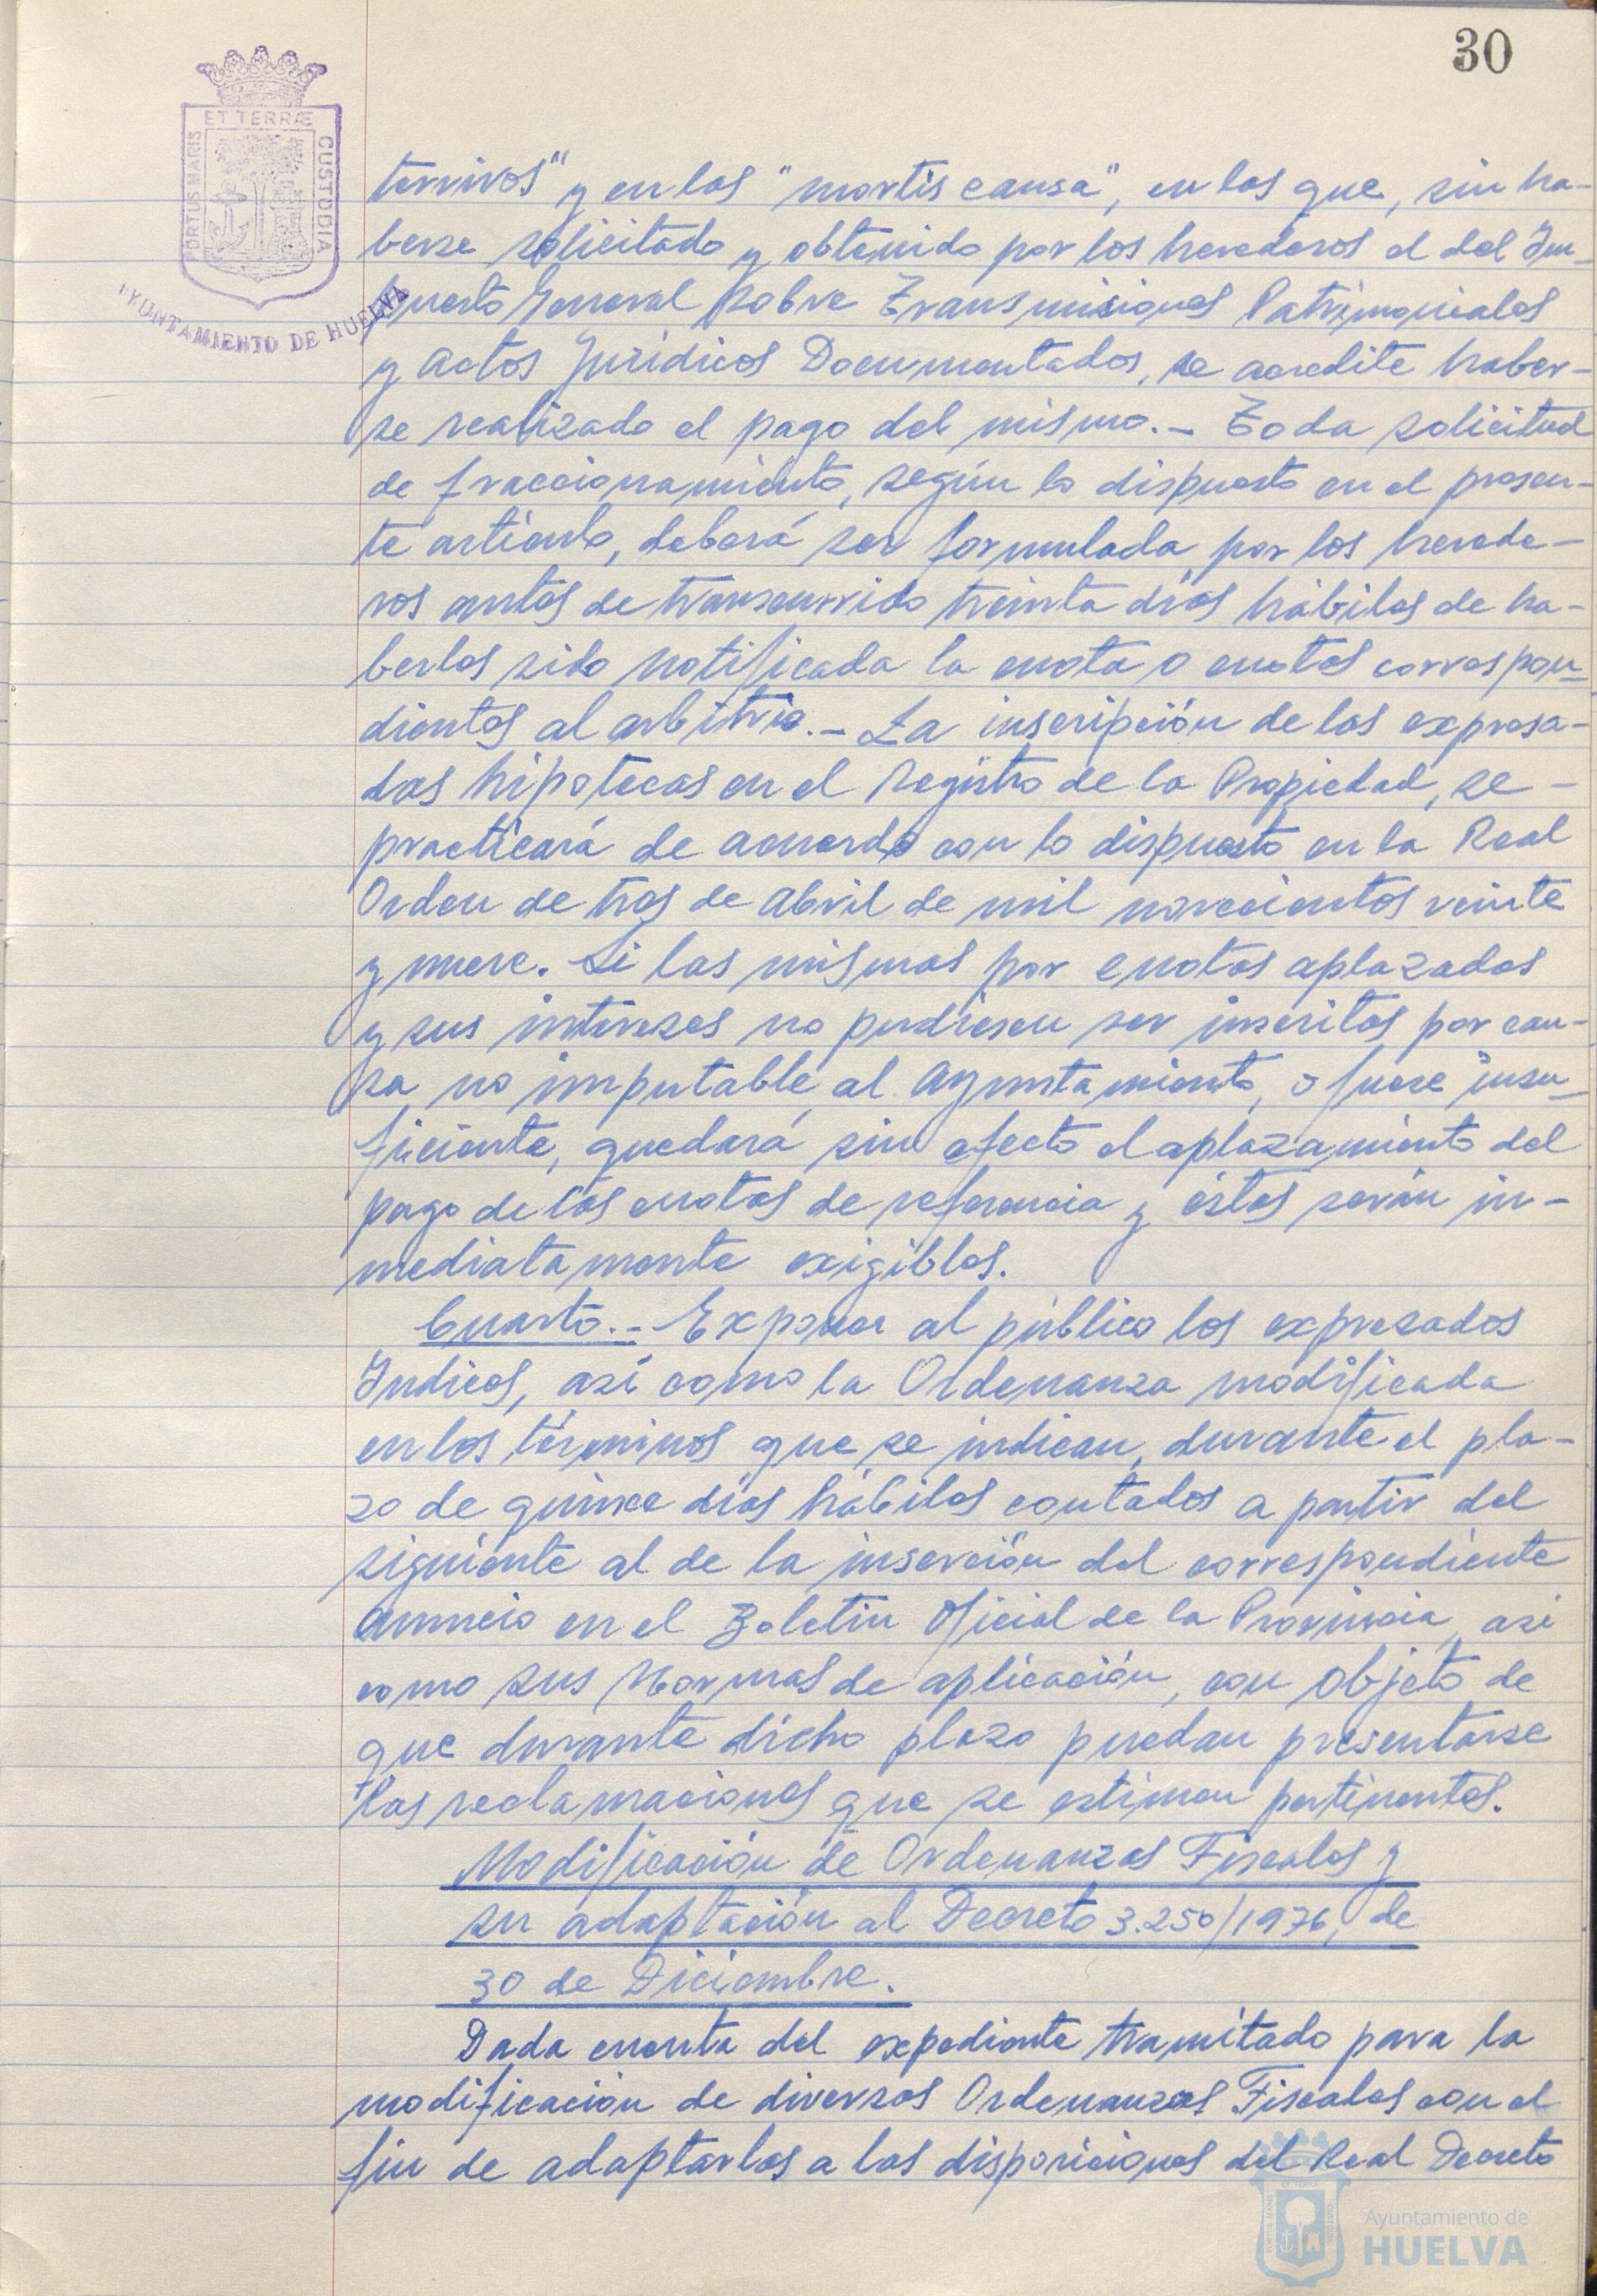 30
ET TERRÆ
PORTUS MARIS
CUSTODIA
AYUNTAMIENTO DE HUELVA
tervivos" y en las "mortis causa", en las que, sin ha-
berse solicitado y obtenido por los herederos el del Im-
puesto General sobre Transmisiones Patrimoniales
y Actos Jurídicos Documentados, se acredite haber-
se realizado el pago del mismo.- Toda solicitud
de fraccionamiento, según lo dispuesto en el presen-
te artículo, deberá ser formulada por los herede-
ros antes de transcurrido treinta días hábiles de ha-
berles sido notificada la cuota o cuotas correspon-
dientes al arbitrio.- La inscripción de las expresa-
das hipotecas en el Registro de la Propiedad, se -
practicará de acuerdo con lo dispuesto en la Real
Orden de tres de Abril de mil novecientos veinte
y nueve. Si las mismas por cuotas aplazadas
y sus intereses no pudiesen ser inscritas por cau-
sa no imputable al Ayuntamiento, o fuese insu-
ficiente, quedará sin efecto el aplazamiento del
pago de las cuotas de referencia y éstas serán in-
mediatamente exigibles.
Cuarto.- Exponer al público los expresados
Indices, así como la Ordenanza modificada
en los términos que se indican, durante el pla-
zo de quince días hábiles contados a partir del
siguiente al de la inserción del correspondiente
anuncio en el Boletin Oficial de la Provincia, asi
como sus Normas de aplicación, con objeto de
que durante dicho plazo puedan presentarse
las reclamaciones que se estimen pertinentes.
Modificación de Ordenanzas Fiscales y
su adaptación al Decreto 3.250/1976, de
30 de Diciembre.
Dada cuenta del expediente tramitado para la
modificación de diversas Ordenanzas Fiscales con el
fin de adaptarlas a las disposiciones del Real Decreto
Ayuntamiento de
HUELVA